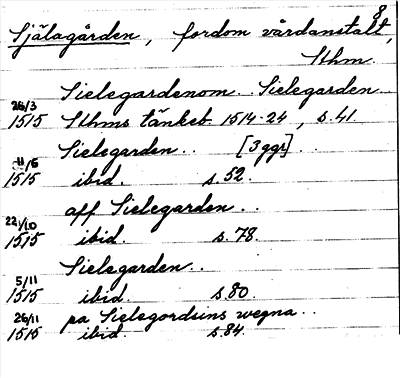 8
Själagården, fordom vårdanstalt,
Sthm.
Sielegardenom.. Sielegarden..
26/3 1515 Sthms tänkeb. 1514-24, s. 41.
Sielegarden.. [3 ggr]..
11/6 1515 ibid. s. 52.
aff Sielegarden..
22/10 1515 ibid. s. 78.
Sielegarden..
5/11 1515 ibid. s. 80.
pa Sielegordsins wegna..
26/11 1515 ibid. s. 84.